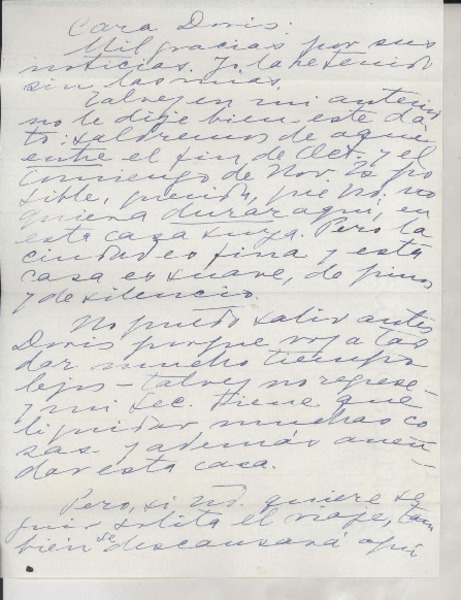 Cara Doris:
Mil gracias por sus
noticias. Yo la he tenido
sin las mías.
Talvez en mi anterior
no le dije bien este da-
to: saldremos de aquí
entre el fin de Oct. y el
comienzo de Nov. Es po-
sible, querida, que Ud. no
quiera durar aquí, en
esta casa suya. Pero la
ciudad es fina y esta
casa es suave, de pinos
y de silencio.
No puedo salir antes
Doris porque voy a tar
dar mucho tiempo
lejos – talvez no regrese –
y mi Sec. tiene que
liquidar muchas co
sas. y además arren-
dar esta casa.
Pero, si Ud. quiere se
guir solita el viaje, tam
bien se descansará aquí